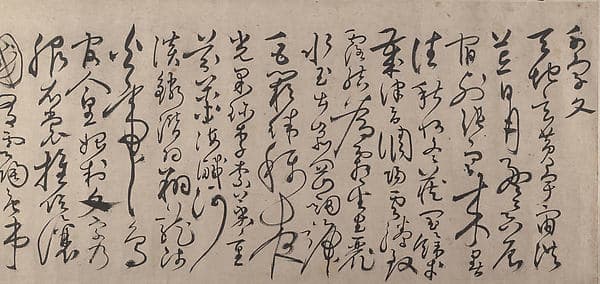 千字文
天地玄黃宇宙洪
荒日月盈昃辰
宿列張寒來暑
往秋收冬藏閏餘成
歲律呂調陽雲騰致
雨露結為霜金生麗
水玉出崑岡劍號
巨闕珠稱夜
光果珍李柰菜重
芥薑海鹹河
淡鱗潛羽翔龍師
火帝鳥
官人皇始制文字乃
服衣裳推位讓
國有虞陶唐弔